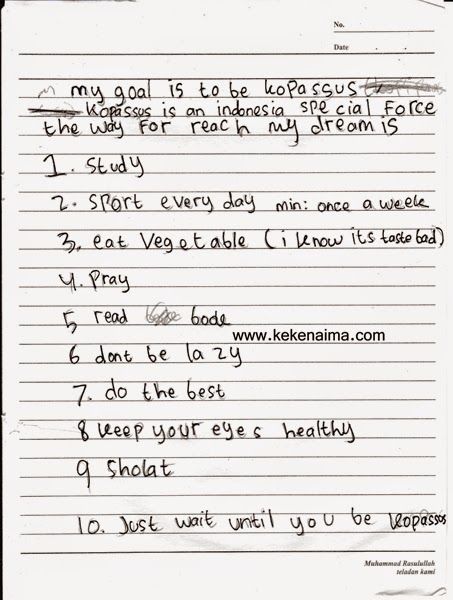 No.
Date
my goal is to be kopassus
Kopassus is an indonesia special force
the way for reach my dream is
1. study
2. sport every day min: once a week
3. eat vegetable (i know its taste bad)
4. pray
5 read bode
www.kekenaima.com
6 dont be lazy
7. do the best
8 keep your eyes healthy
9 sholat
10. Just wait until you be kopassus
Muhammad Rasulullah
teladan kami